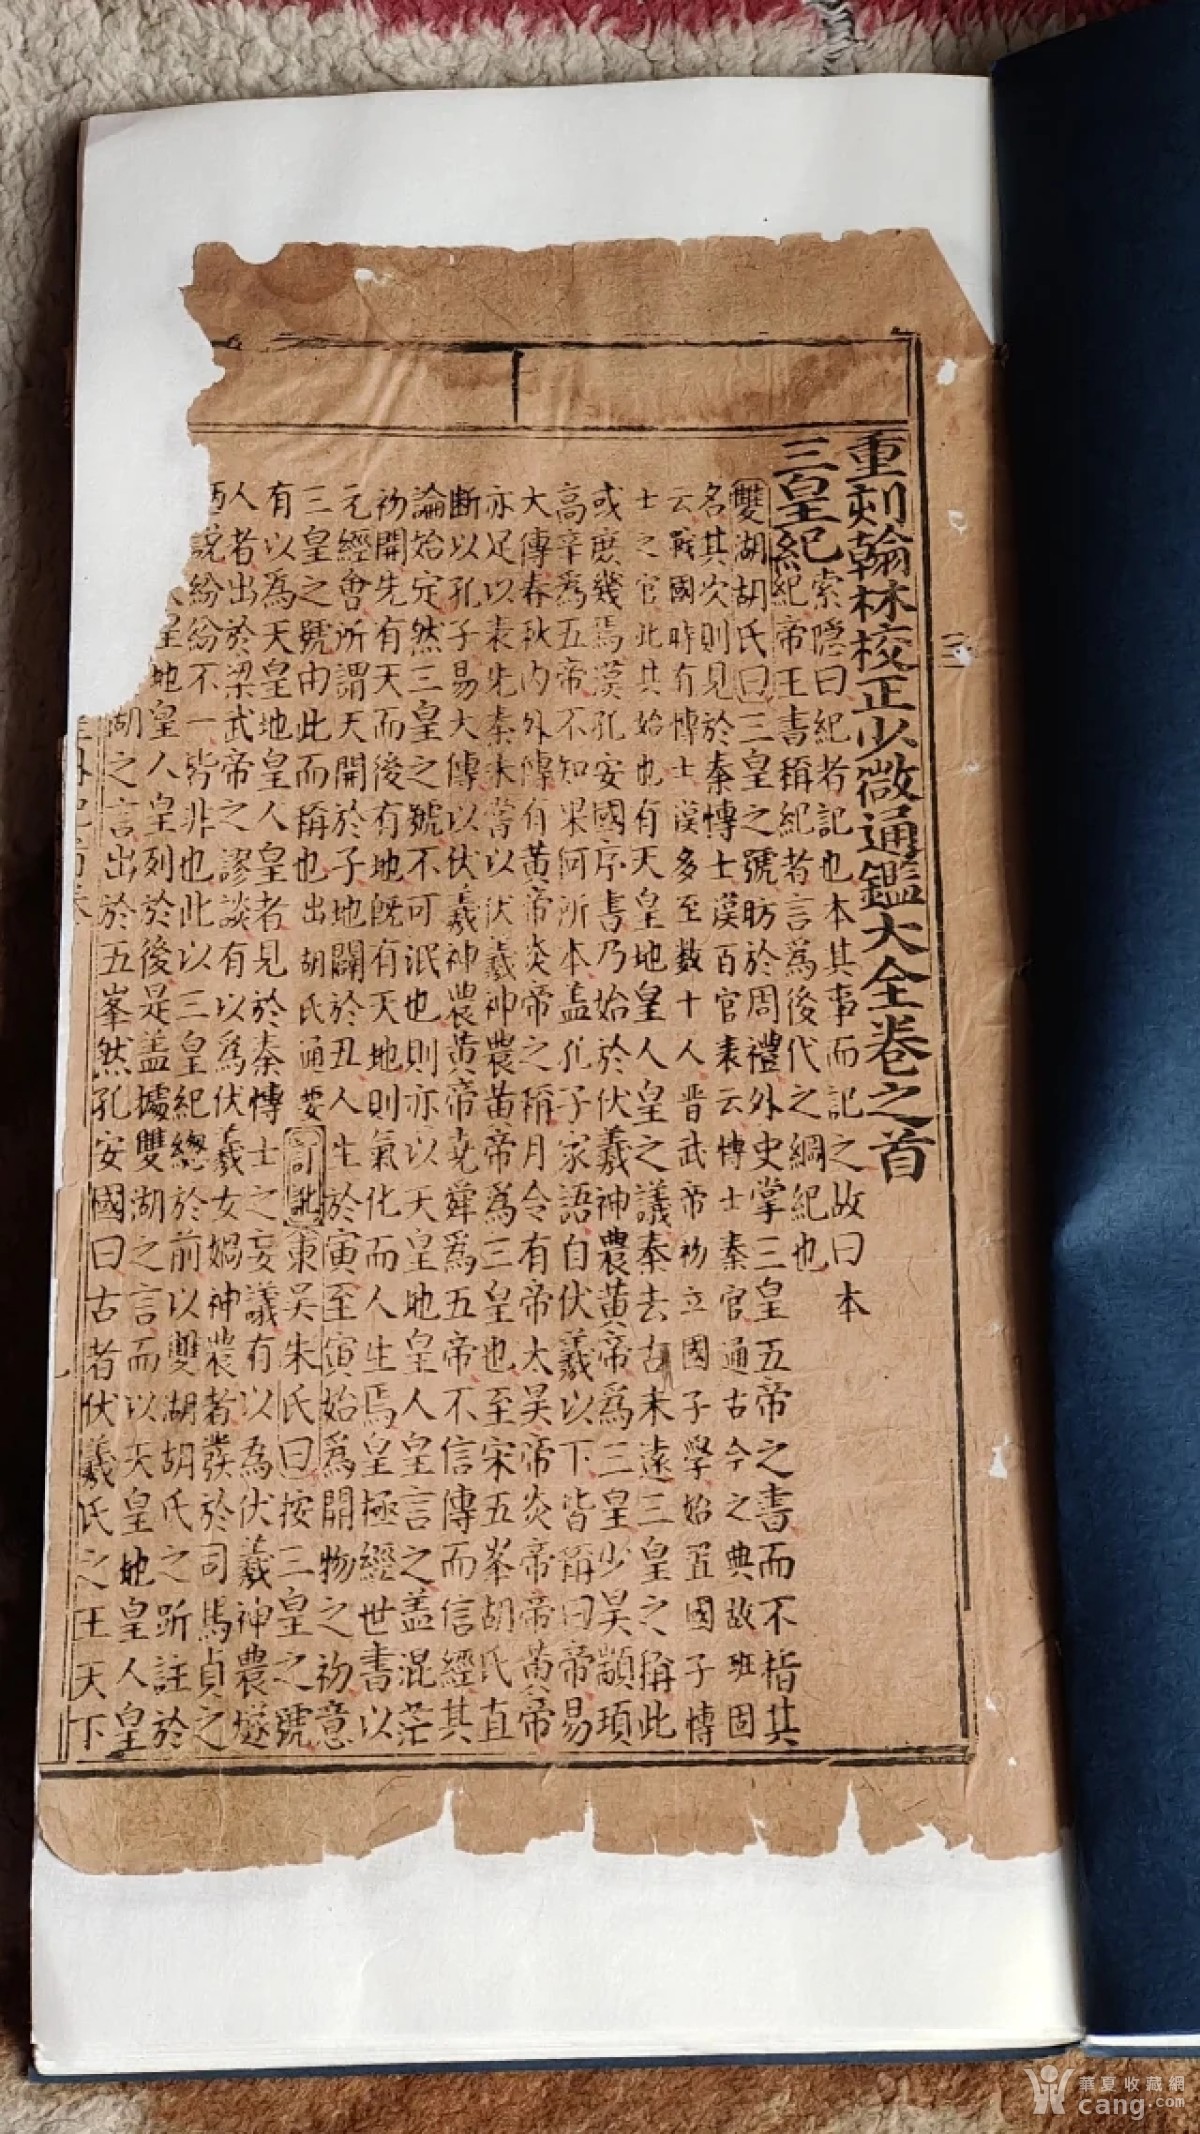 重刻翰林校正少微通鑑大全卷之首
三皇紀
索隱曰紀者記也本其事而記之故曰本
紀帝王書稱紀者言爲後代之綱紀也
雙湖胡氏曰三皇之號昉於周禮外史掌三皇五帝之書而不指其
名其次則見於秦博士漢百官表云博士秦官通古今之典故班固
云戰國時有博士漢多至數十人晋武帝初立國子學始置國子博
士之官此其始也有天皇地皇人皇之議秦去古未遠三皇之稱此
或庶幾焉漢孔安國序書乃始於伏羲神農黃帝爲三皇少昊顓頊
高辛爲五帝不知果何所本盖孔子家語自伏羲以下皆稱曰帝易
大傳春秋內外傳有黃帝炎帝之稱月令有帝太昊帝炎帝帝黃帝
亦足以表先秦未嘗以伏羲神農黃帝爲三皇也至宋五峯胡氏直
断以孔子易大傳以伏羲神農黃帝尭舜爲五帝不信傳而信經其
論始定然三皇之號不可泯也則亦以天皇地皇人皇言之盖混茫
初開先有天而後有地旣有天地則氣化而人生焉皇極經世書以
元經會所謂天開於子地闢於丑人生於寅至寅始爲開物之初意
三皇之號由此而稱也出胡氏通要 訂訛 東吴朱氏曰按三皇之號
有以爲天皇地皇人皇者見於秦博士之妄議有以爲伏羲神農燧
人者出於梁武帝之謬談有以爲伏羲女媧神農者發於司馬貞之
説紛紛不一皆非也此以三皇紀總於前以雙湖胡氏之所註於
皇地皇人皇列於後是盖據雙湖之言而以天皇地皇人皇
湖之言出於五峯然孔安國曰古者伏羲氏之王天下
卷
二
華夏收藏網
cang.com